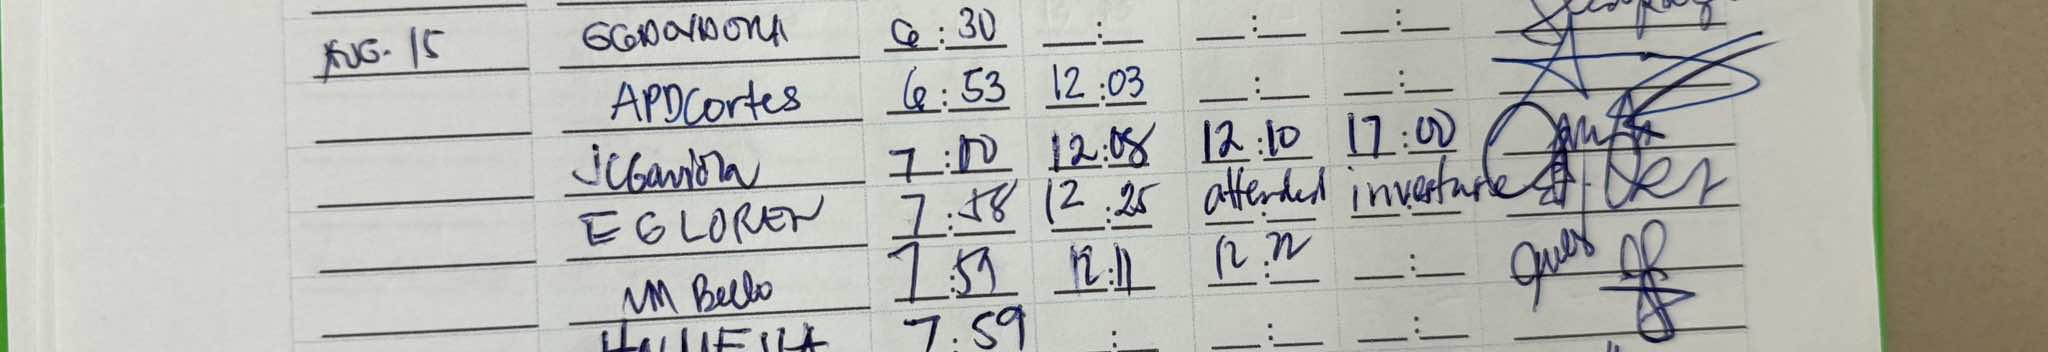 AUG. 15 GGDOYDORA 6:30 __:__ __:__ __:__
APDCortes 6:53 12:03 __:__ __:__
JCGaviola 7:00 12:08 12:10 17:00
EGLOREN 7:58 12:25 attended investure
VM Bello 7:59 12:11 12:22 __:__
7:59 __:__ __:__ __:__